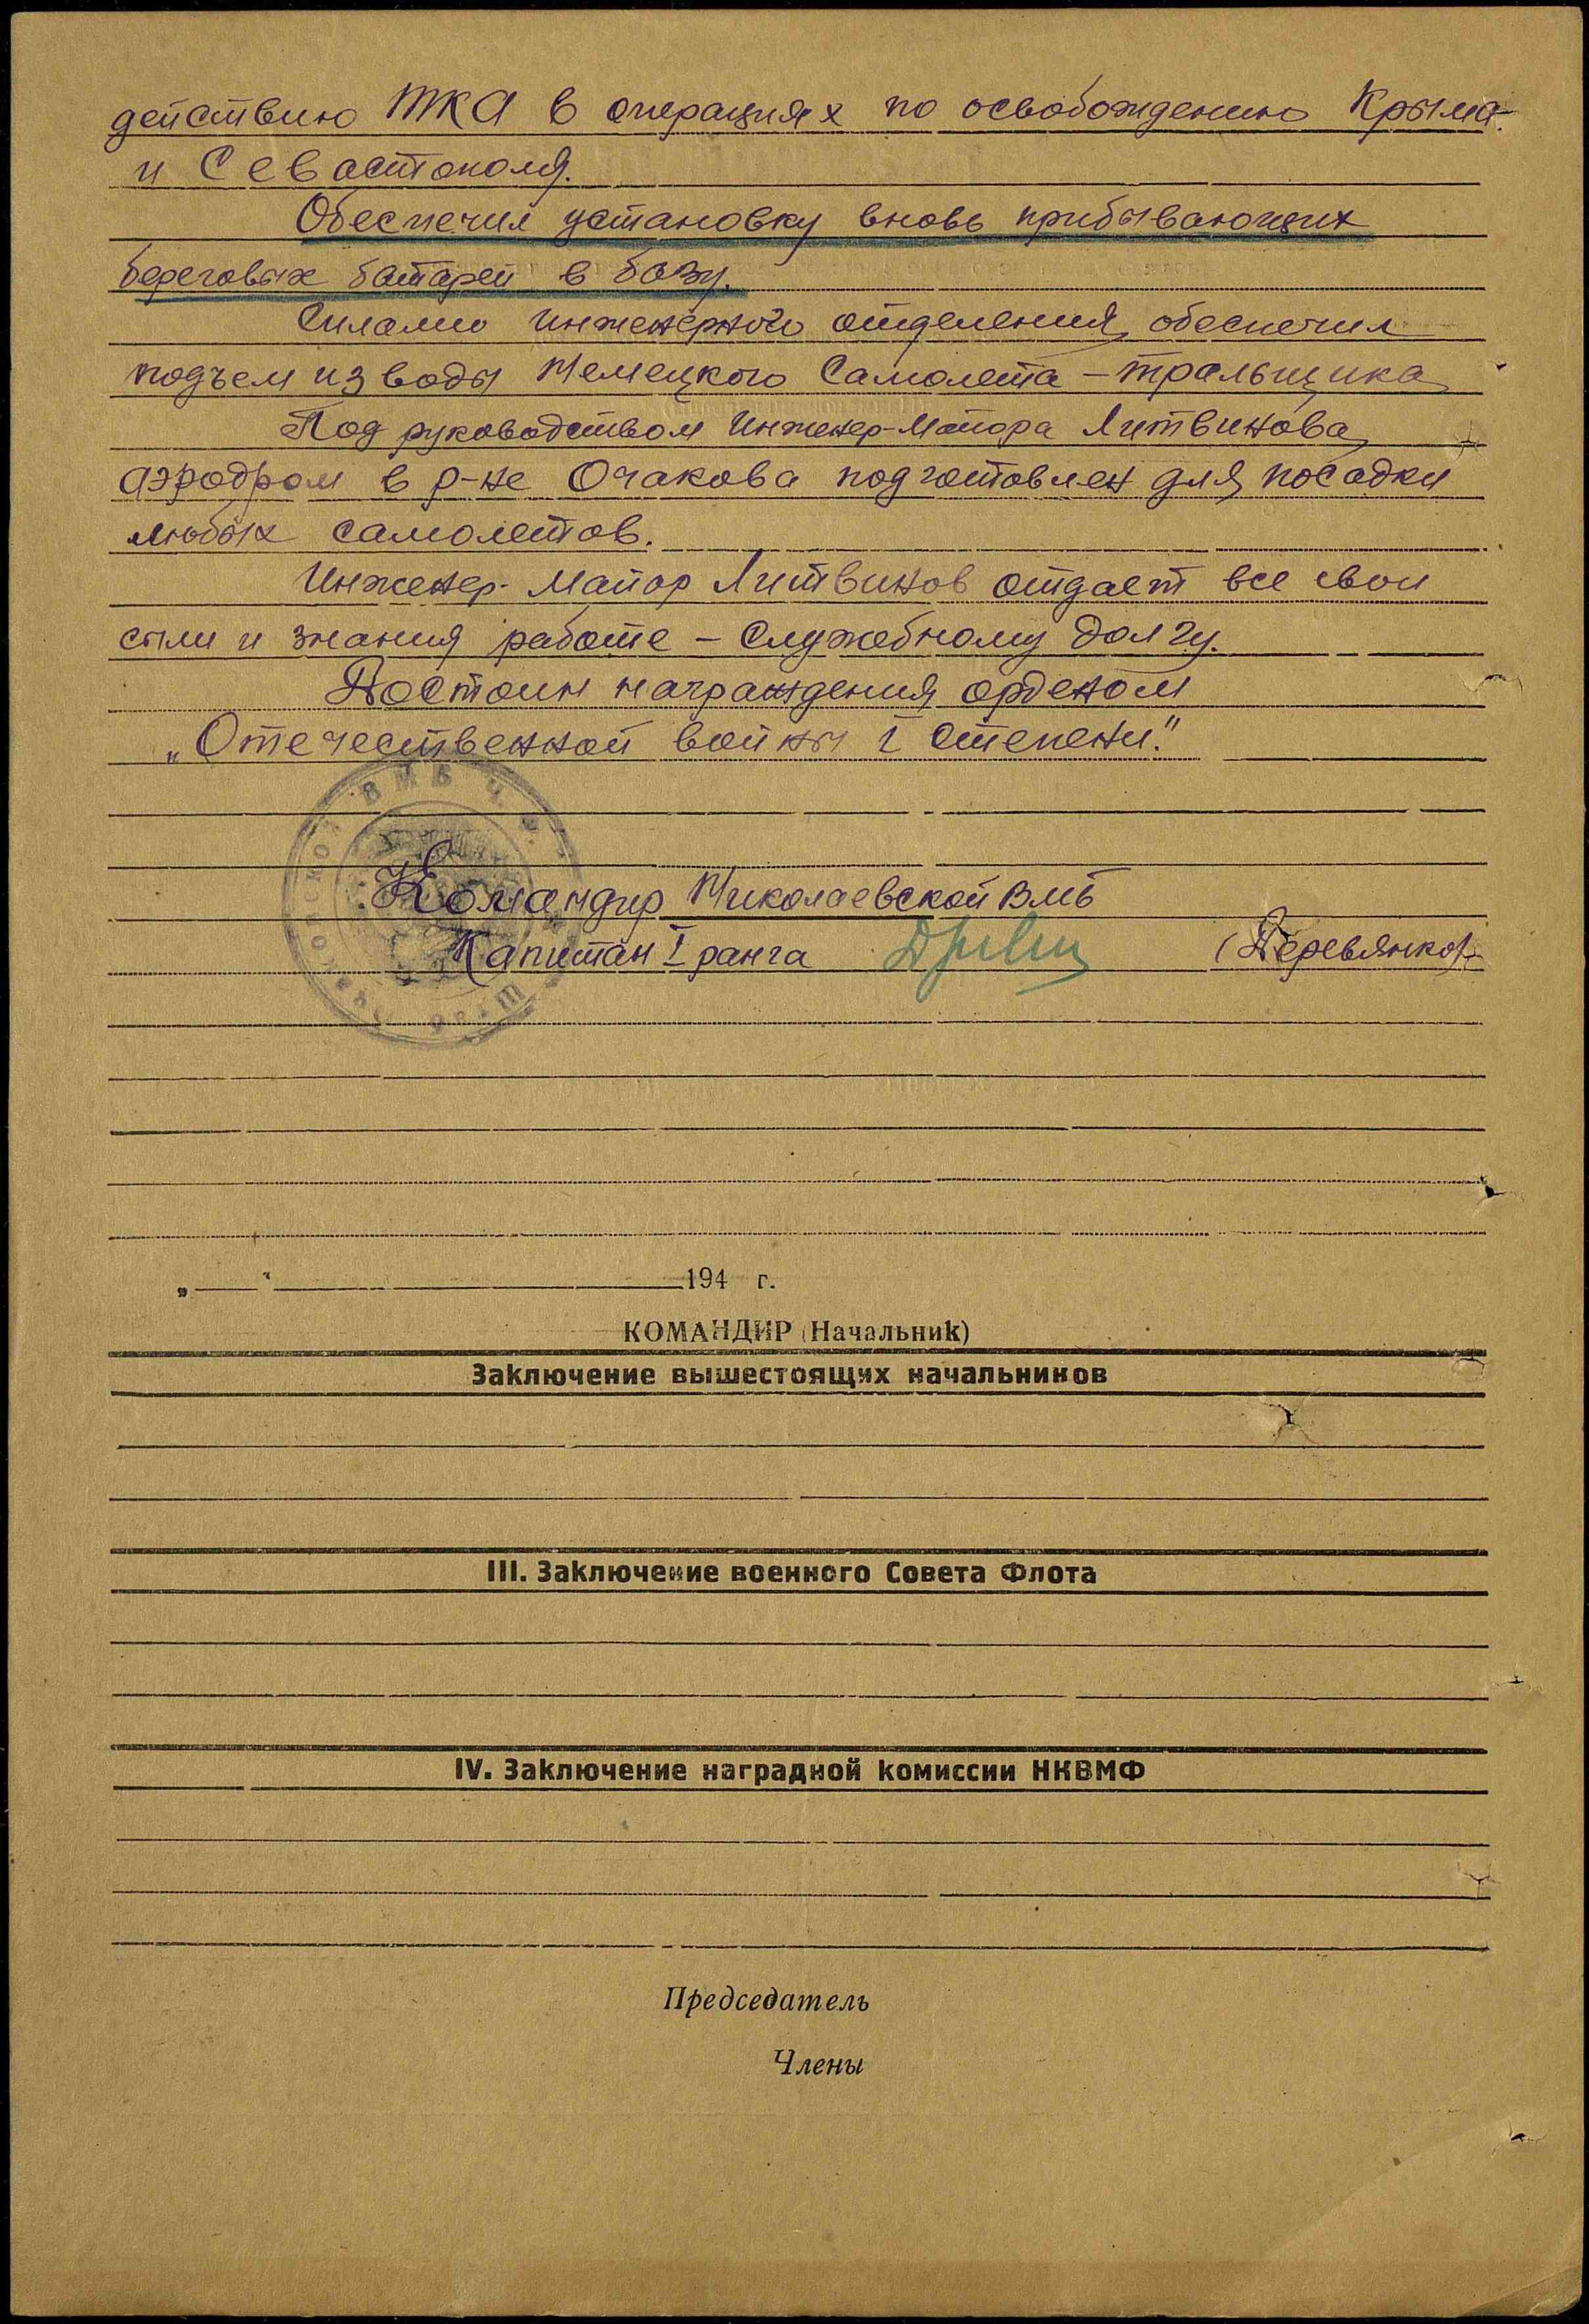 действию ТКА в операциях по освобождению Крыма
и Севастополя.
Обеспечил установку вновь прибывающих
береговых батарей в базу.
Силами инженерного отделения обеспечил
подъем из воды Немецкого Самолета – тральщика
Под руководством Инженер-Майора Литвинова
аэродром в р-не Очакова подготовлен для посадки
любых самолетов.
Инженер-Майор Литвинов отдает все свои
силы и знания работе – Служебному долгу.
Достоин награждения орденом
„Отечественной войны I степени."
Командир Николаевской ВМБ
Капитан I ранга (Деревянко)
„ " 194 г.
КОМАНДИР (Начальник)
Заключение вышестоящих начальников
III. Заключение военного Совета Флота
IV. Заключение наградной комиссии НКВМФ
Председатель
Члены